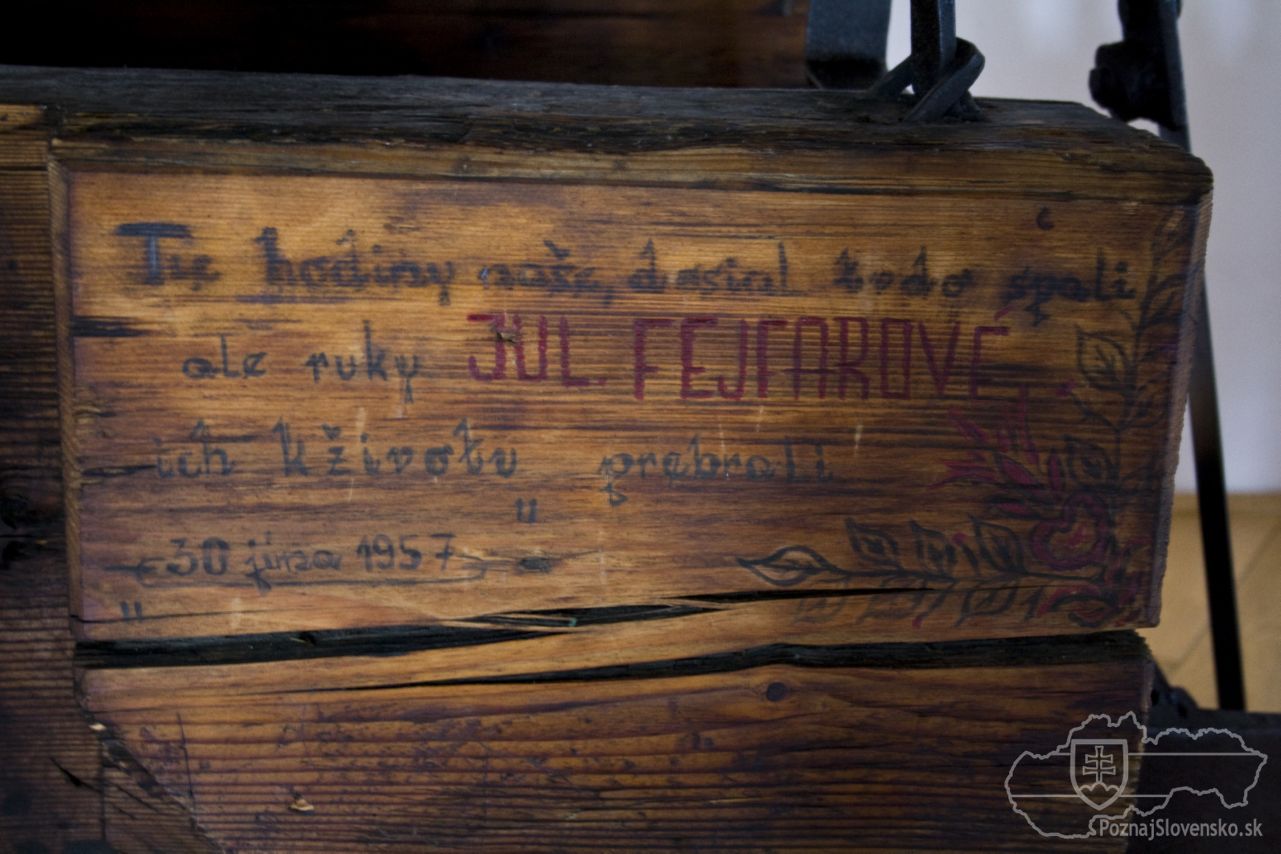 Tu hodiny naše, dosial tvdo spali
ale ruky JUL. FEJFAROVÉ,
ich k životu prebrali
30 júna 1957
PoznajSlovensko.sk